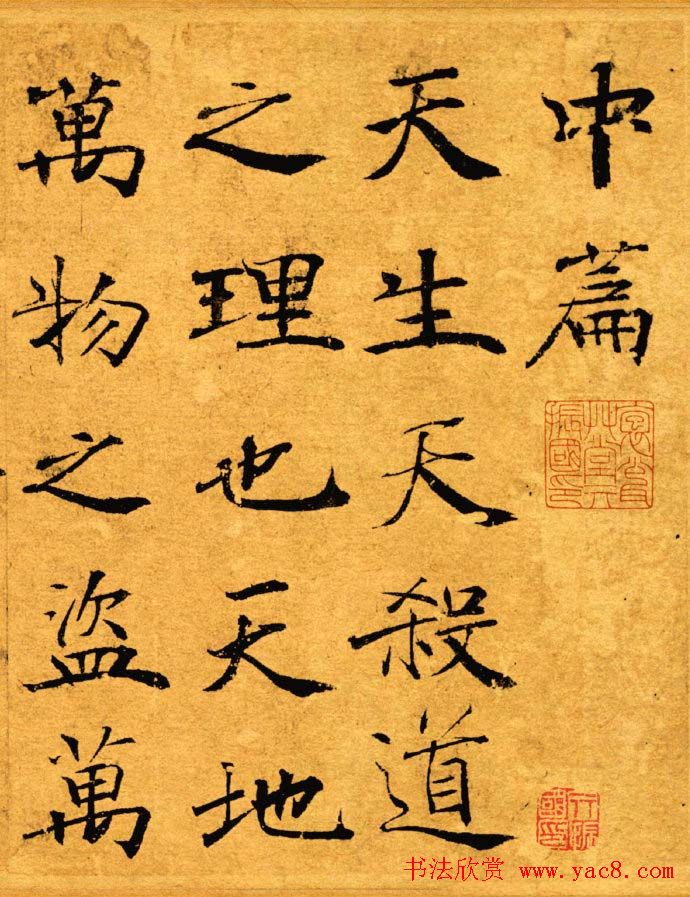 中篇
天生天殺道
之理也天地
萬物之盜萬
书法欣赏 www.yac8.com